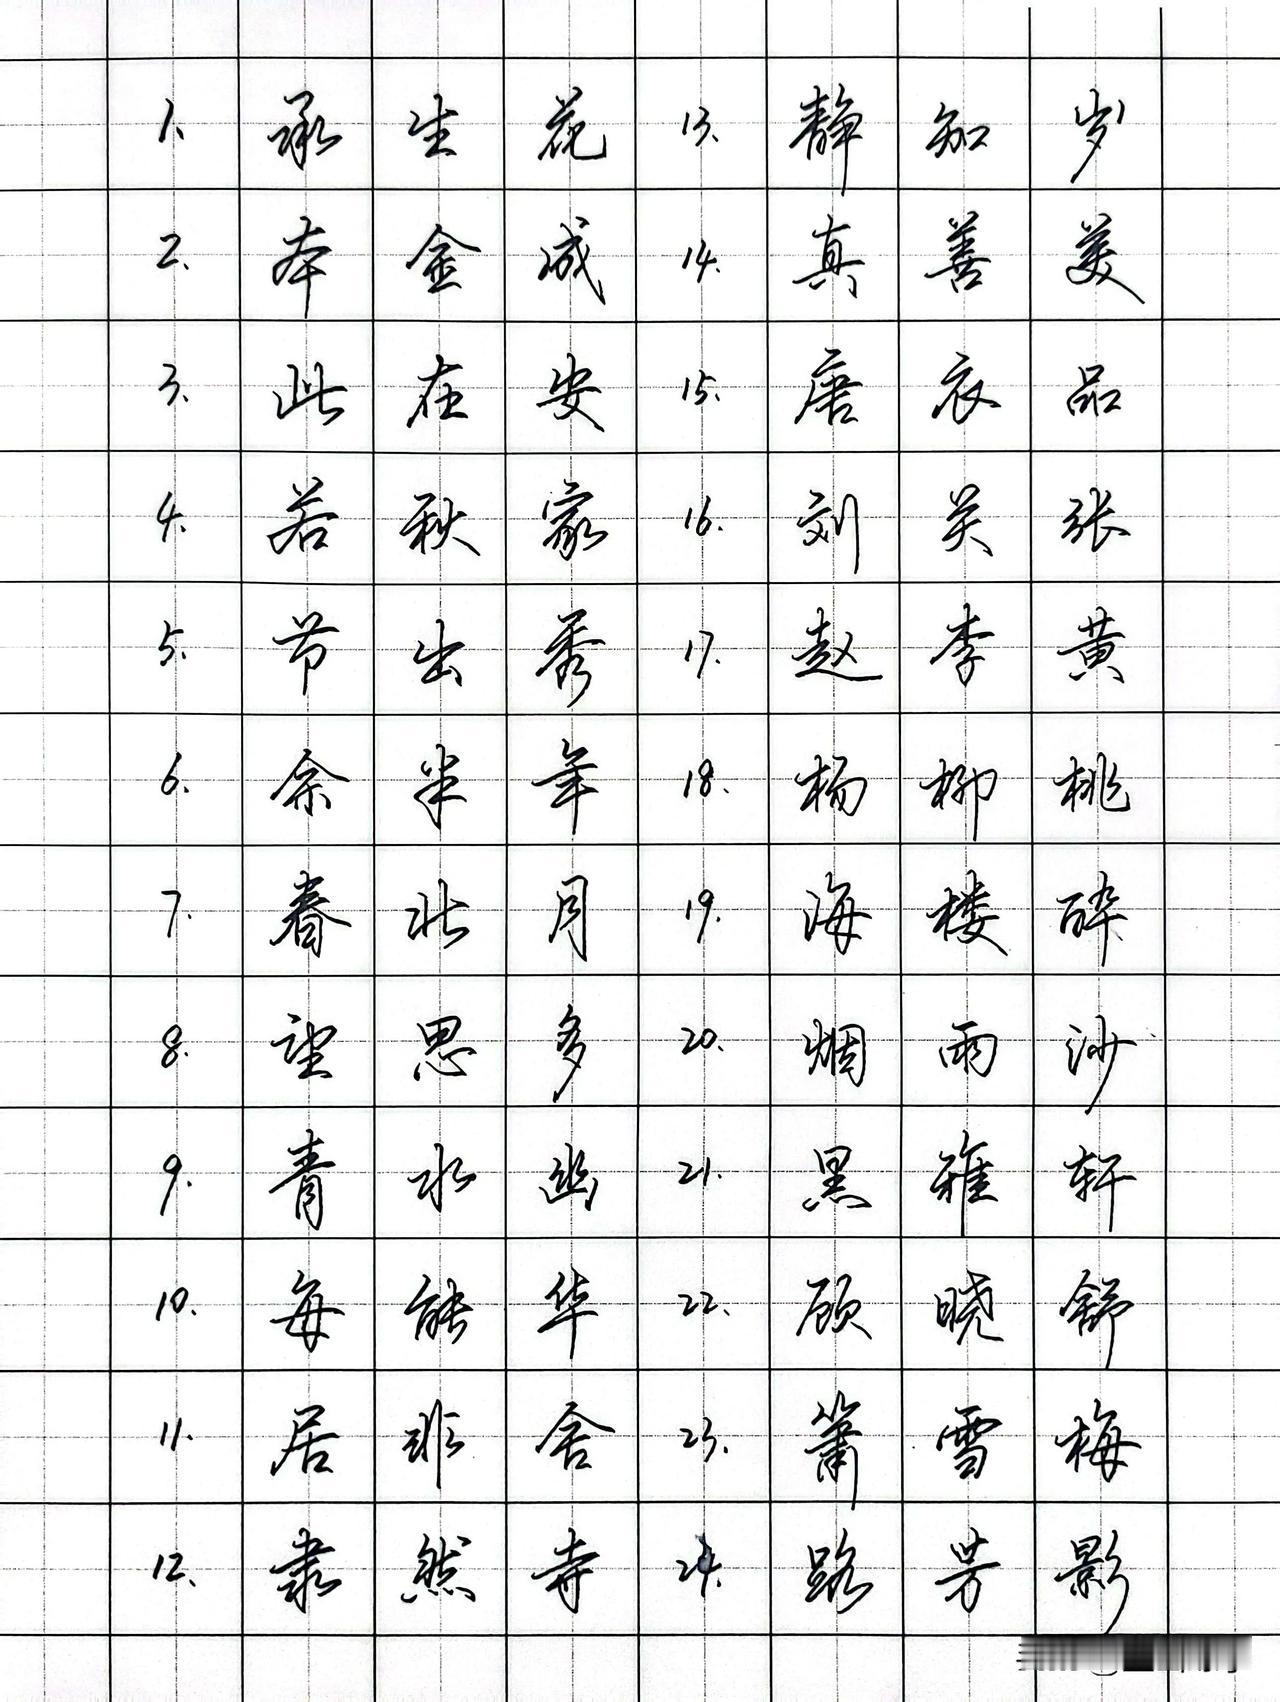 1. 承生花 13. 静知岁
2. 本金成 14. 真善美
3. 此在安 15. 唐衣品
4. 若秋家 16. 刘关张
5. 节出秀 17. 赵李黄
6. 余半年 18. 杨柳桃
7. 春北月 19. 海楼醉
8. 望思多 20. 烟雨沙
9. 青水幽 21. 黑雅轩
10. 每能华 22. 顾晓舒
11. 居非舍 23. 箫雪梅
12. 隶然寺 24. 路芳影